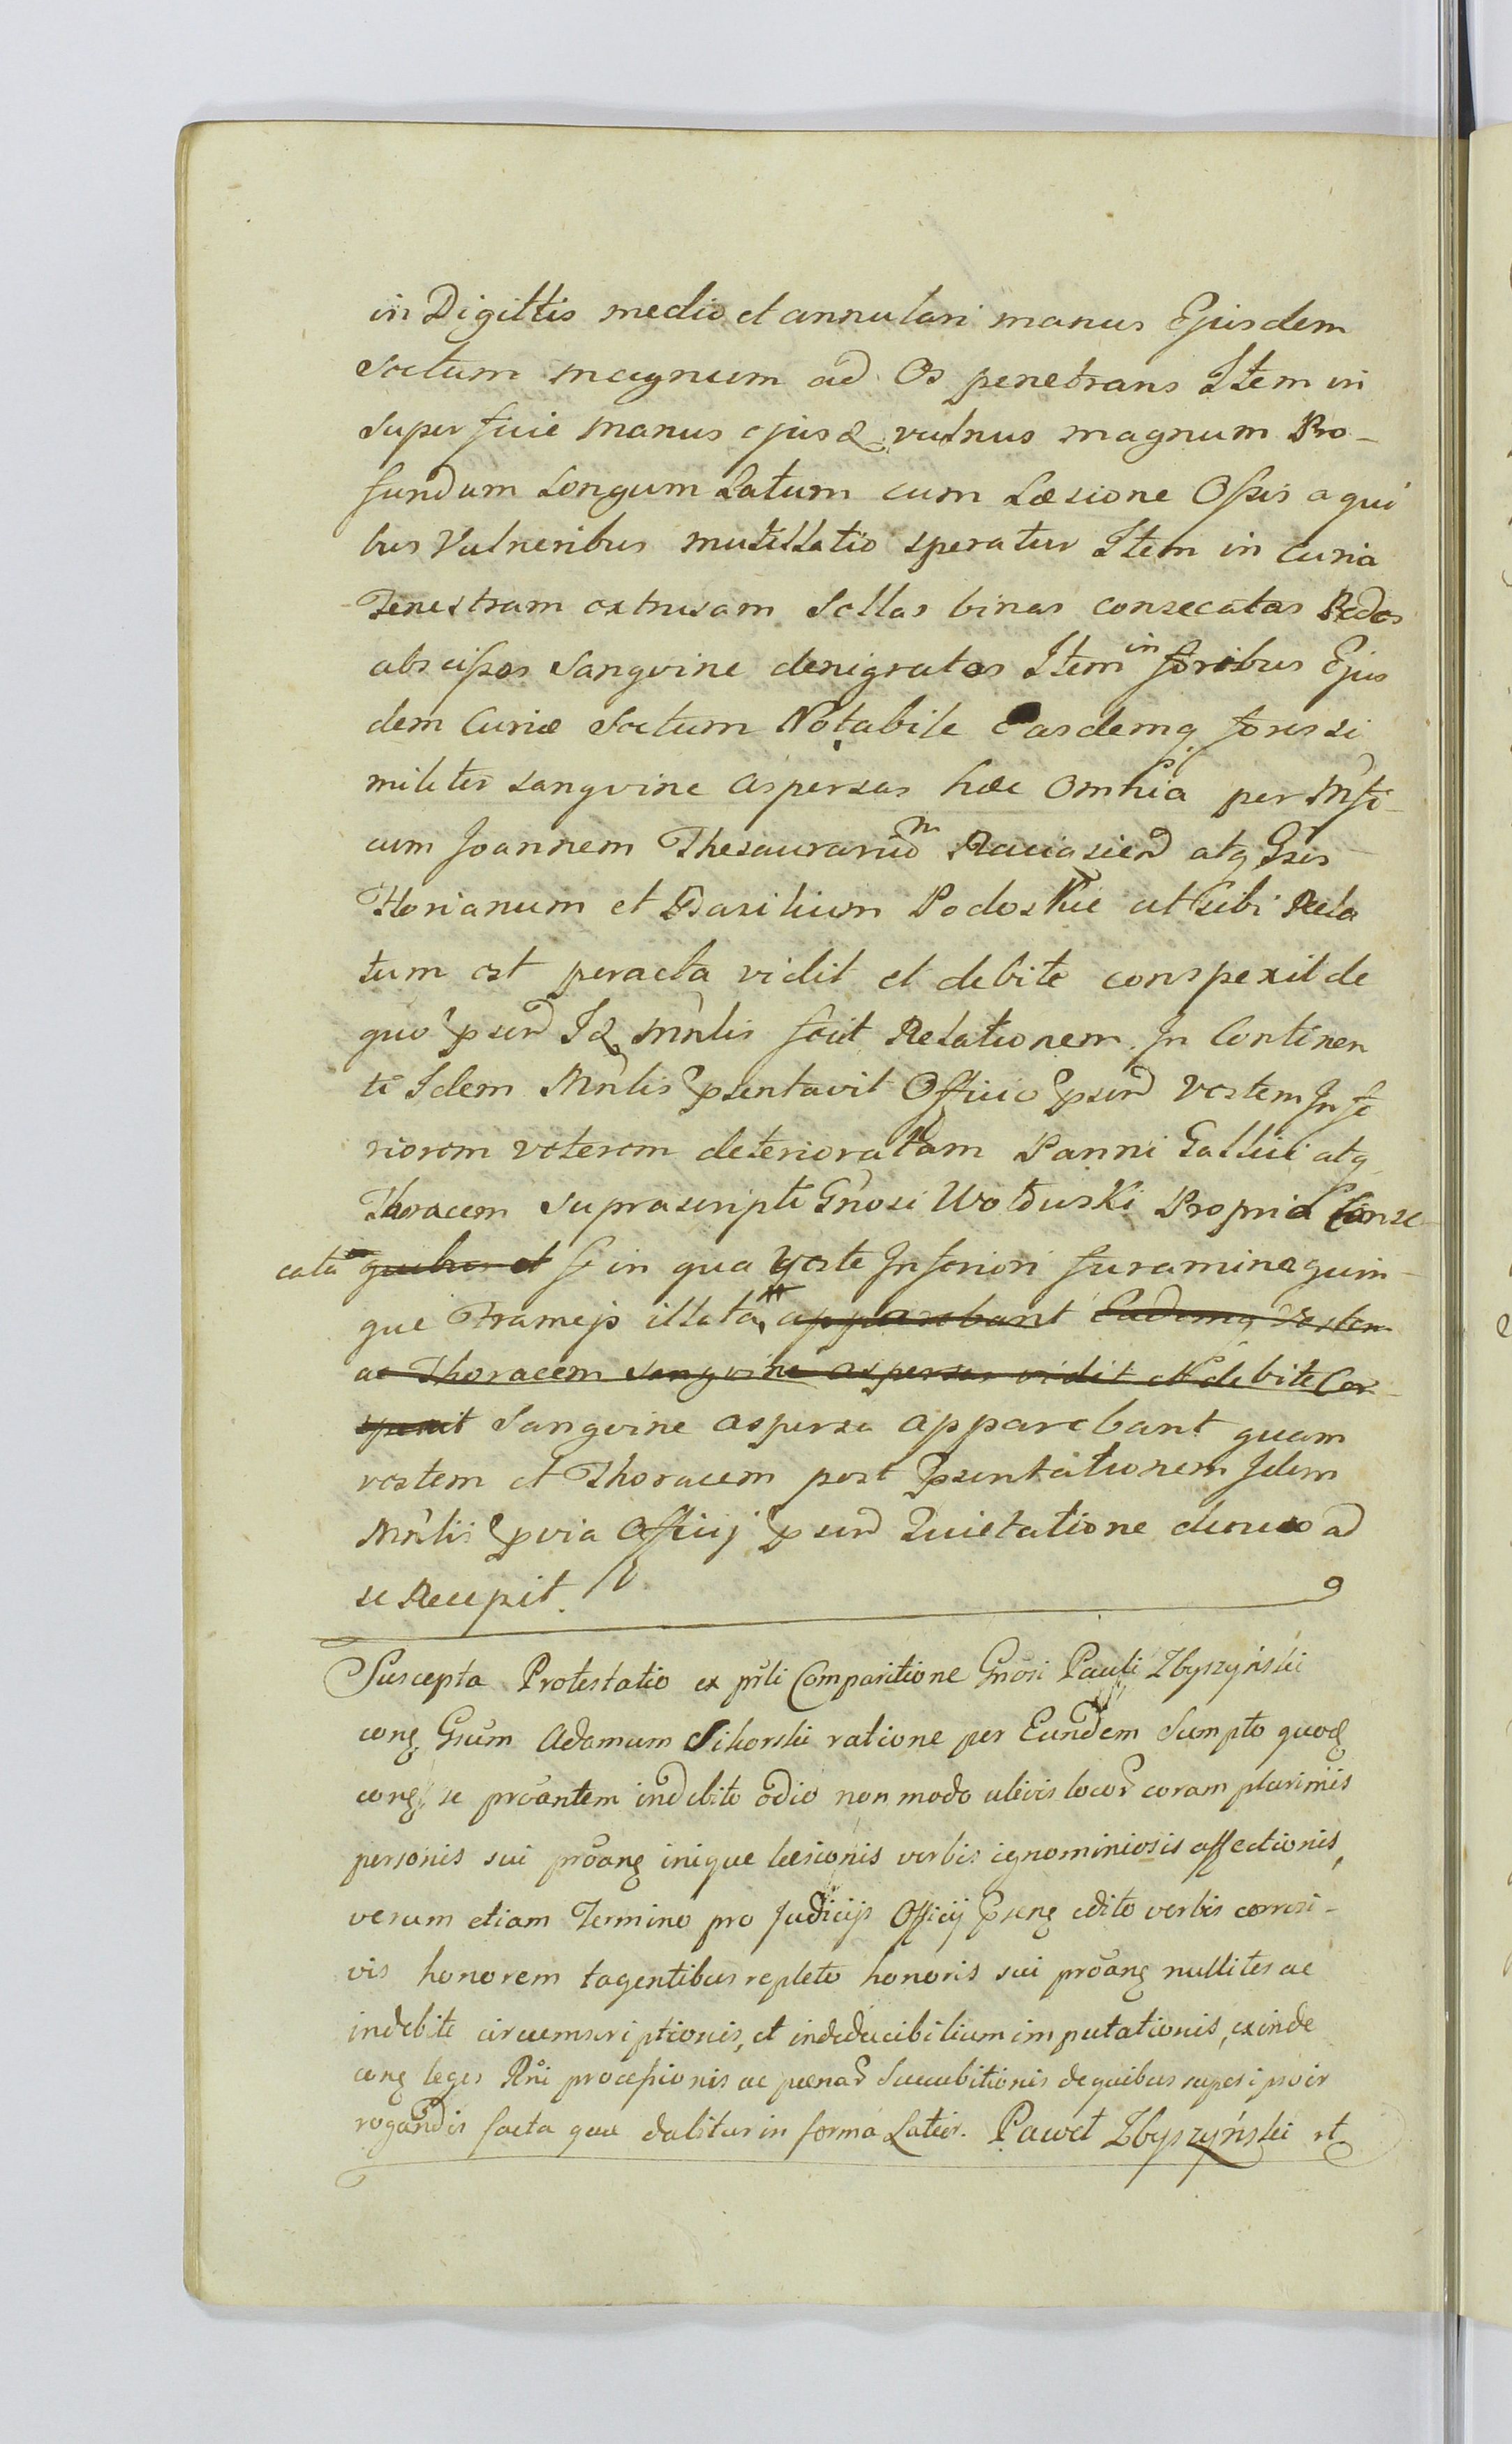 in Digittis medio et annulari manus Ejusdem
sectum magnum ad Os penetrans Item in
superficie manus ejusd vulnus magnum Pro-
fundum Longum Latum cum Læsione Ossis a qui
bus Vulneribus mutillatio speratur Item in Curia
Fenestram extrusam Sellas binas consecatas Pedes
abscissos Sangvine denigratos Item in foribus Ejus
dem Curiæ Sectum Notabile Easdemq fores si
militer sangvine aspersas hæc omnia per Mfi-
cum Joannem Thesaurarium atq Gsos
Florianum et Basilium Podoskie ut sibi Rela
tum est peracta vidit et debite conspexit de
quo psen Id Mnlis fecit Relationem. In Continen
ti Idem Mnlis psentavit Officio psen Vestem Infe
riorem veterem deterioratam Panni Gallici atq
Thoracem suprascripti Gnosi Wolduski Propria Conse-
cata in qua Veste Inferiori foramina quin-
que Frameis illata apparebant Eademq Vestem
ac Thoracem sangvine aspersas vidit et debite Con-
spexit Sangvine aspersa apparebant quam
vestem et Thoracem post psentationem Idem
Mnlis pvia Officij psen Quietatione denuo ad
se Recepit.
Suscepta Protestatio ex prli Comparitione Gnosi Pauli Zbyszyński
cong Gsum Adamum Sikorski ratione per Eundem Sumpto quoq
cong se proantem indebito odio non modo alicis locor coram plurimis
personis sui proang inique læsionis verbis ignominiosis affectionis,
verum etiam Termino pro Judicijs Officij pseng edito verbis corrosi-
vis honorem tagentibus repleto honoris sui proang nulliter ac
indebite circumscriptionis, et indeducibilium imputationis, exinde
cong leges Rni processionis ac pœnar Succubitionis de quibus
rogandis facta quæ dabitur in forma Latior. Paweł Zbyszyński